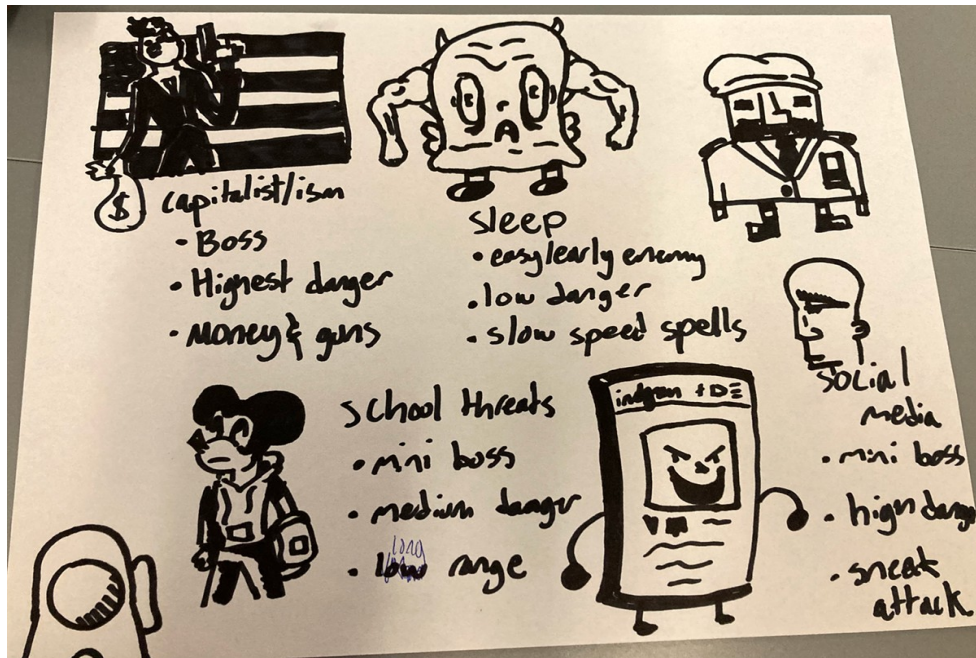 $
capitalist/ism
• Boss
• Highest danger
• Money & guns
sleep
• easy/early enemy
• low danger
• slow speed spells
school threats
• mini boss
• medium danger
• long range
social
media
• mini boss
• high dange
• sneak
attack